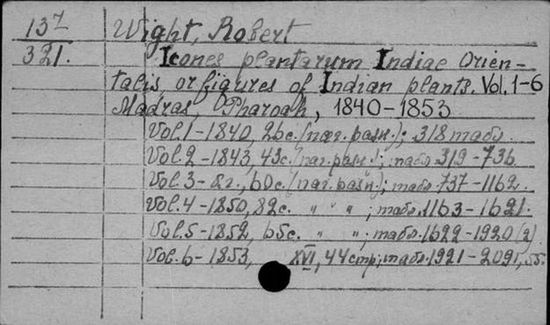 137 Wight, Robert
321. Icones plantarum Indiae Orien-
talis, or figures of Indian plants. Vol. 1-6
Madras, Pharoah, 1840-1853
Vol. 1-1840, 2bc.(наг. разн.); 318 табл.
Vol. 2-1843, 43c.(наг. разн.); табл 319-736
Vol. 3- 60c.(наг. разн.); табл. 737-1162.
Vol. 4-1850, 82c. " " " ; табл. 1163-1621.
Vol. 5-1852, 65c. " " ; табл. 1622-1920(2)
Vol. 6-1853, XVI, 44 стр; табл. 1921-2091,